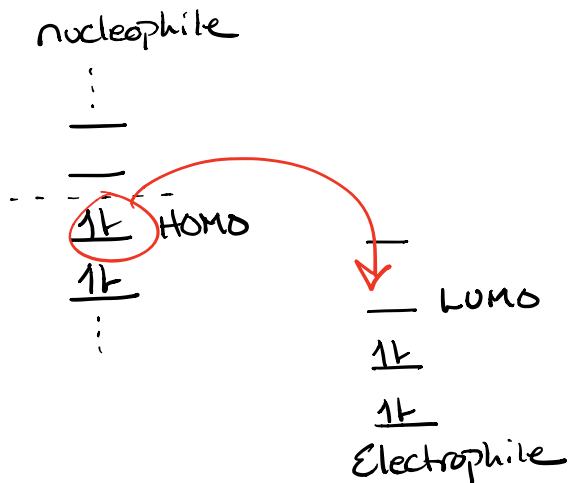 nucleophile
HOMO
LUMO
Electrophile